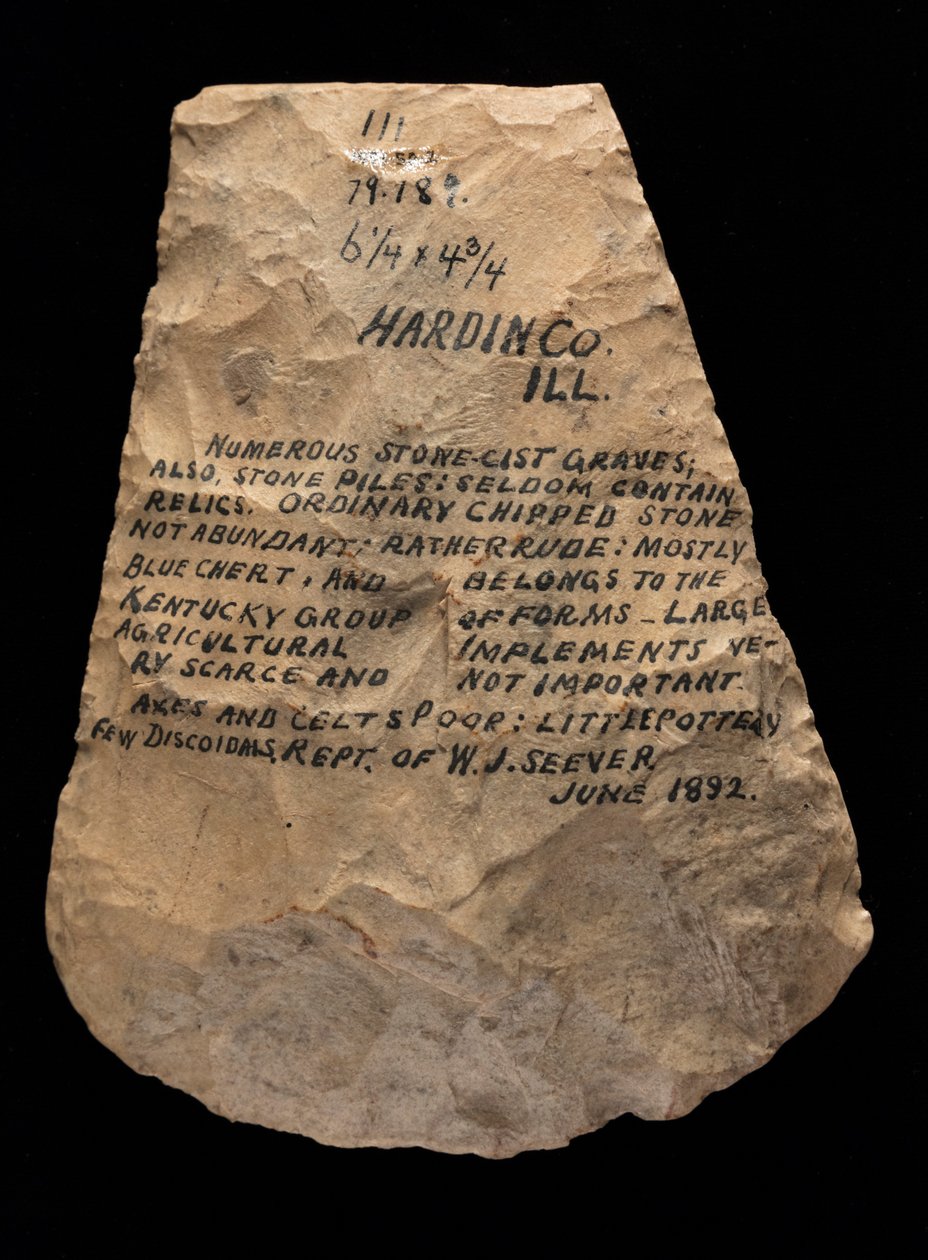 111
79.189.
6 1/4 x 4 3/4
HARDIN CO.
ILL.
NUMEROUS STONE-CIST GRAVES;
ALSO, STONE PILES: SELDOM CONTAIN
RELICS. ORDINARY CHIPPED STONE
NOT ABUNDANT; RATHER RUDE: MOSTLY
BLUE CHERT, AND BELONGS TO THE
KENTUCKY GROUP OF FORMS - LARGE
AGRICULTURAL IMPLEMENTS VE-
RY SCARCE AND NOT IMPORTANT.
AXES AND CELTS POOR: LITTLE POTTERY
FEW DISCOIDALS, REPT. OF W. J. SEEVER
JUNE 1892.